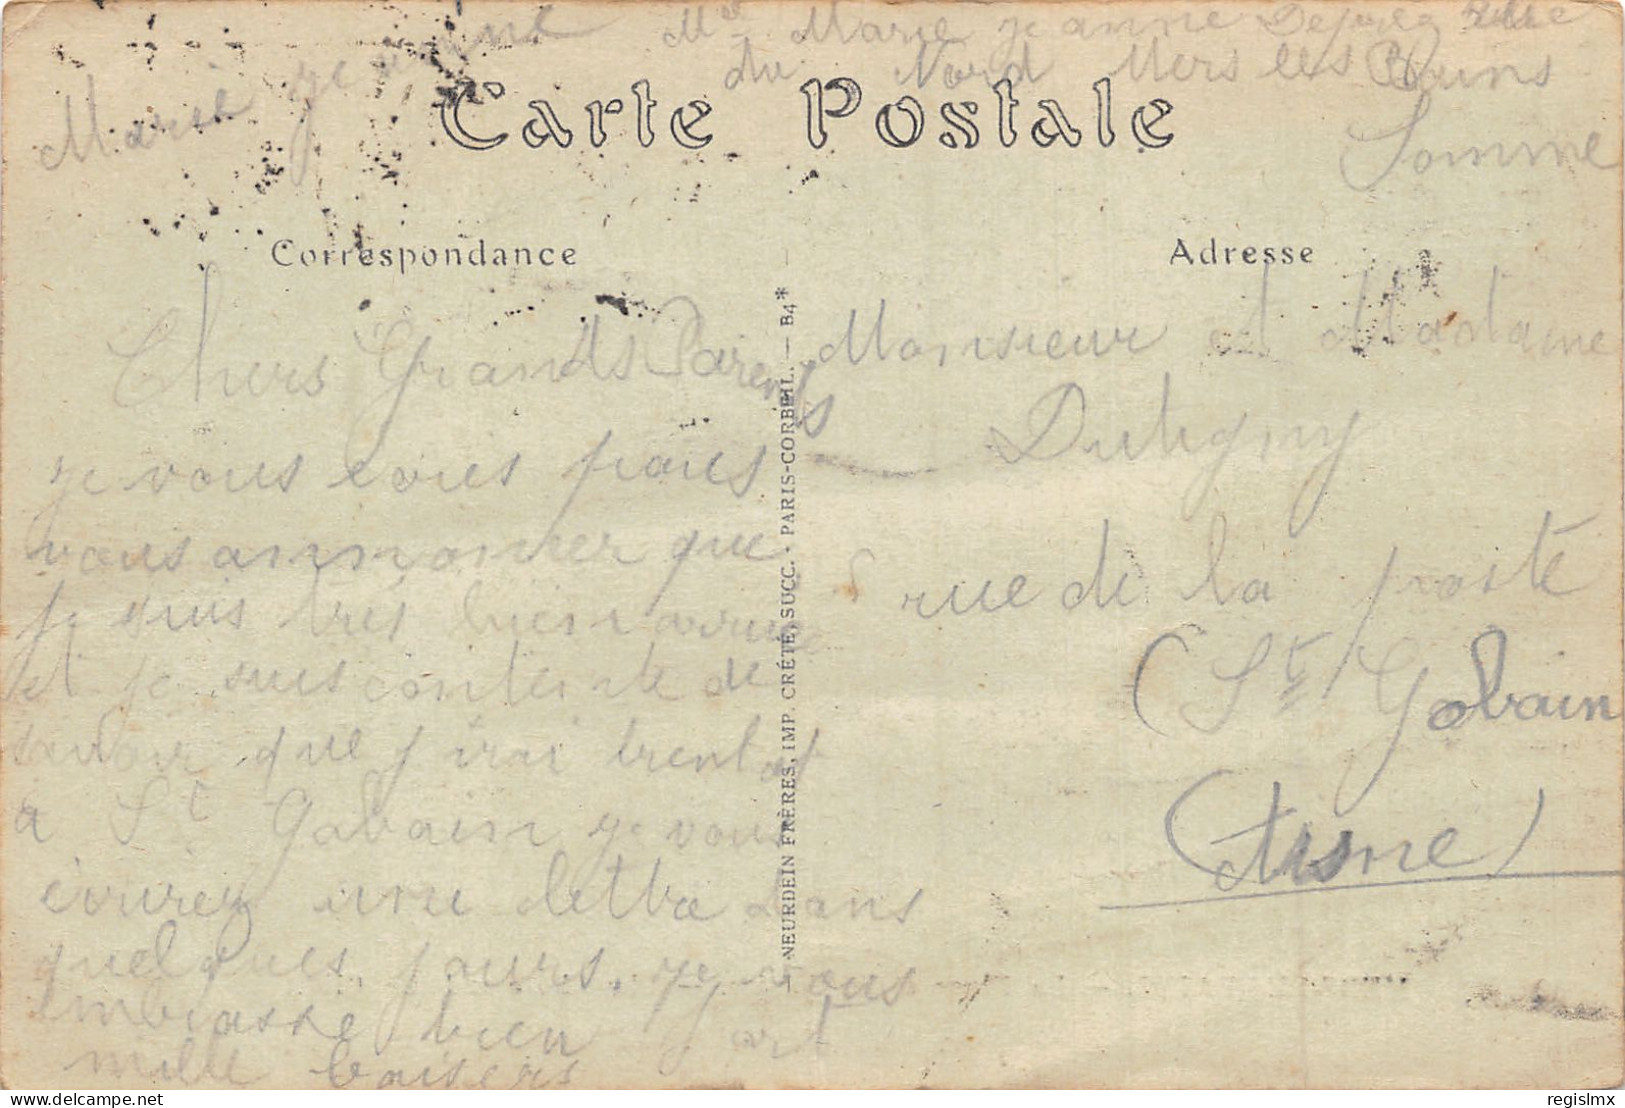 Mlle Marie Jeanne rue
du Nord Mers les Bains
Somme
Marie Jeanne
Carte Postale
Correspondance
Adresse
Chers Grands Parents
je vous écris pour
vous annoncer que
je suis très bien arrivée
et je suis contente de
savoir que j'irai
a St Gobain je vous
écrirez une lettre dans
quelques jours. je vous
embrasse bien fort
mille baisers
NEURDEIN FRÈRES, IMP. CRÉTÉ, SUCC. PARIS-CORBEIL. — B4*
Monsieur et Madame
Dutigny
rue de la poste
(St Gobain
(Aisne)
delcampe.net
regislmx